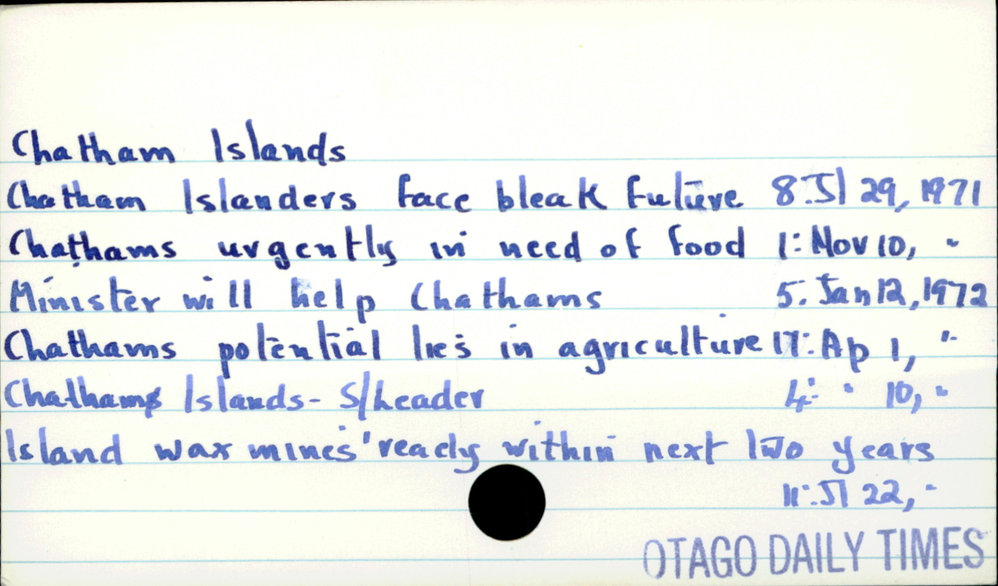 Chatham Islands
Chatham Islanders face bleak future 8: Jl 29, 1971
Chathams urgently in need of food 1: Nov 10, "
Minister will help Chathams 5. Jan 12, 1972
Chathams potential lies in agriculture 17: Ap 1, "
Chathams Islands - S/Leader 4: " 10, "
Island wax mines 'ready within next two years
11: Jl 22, "
OTAGO DAILY TIMES